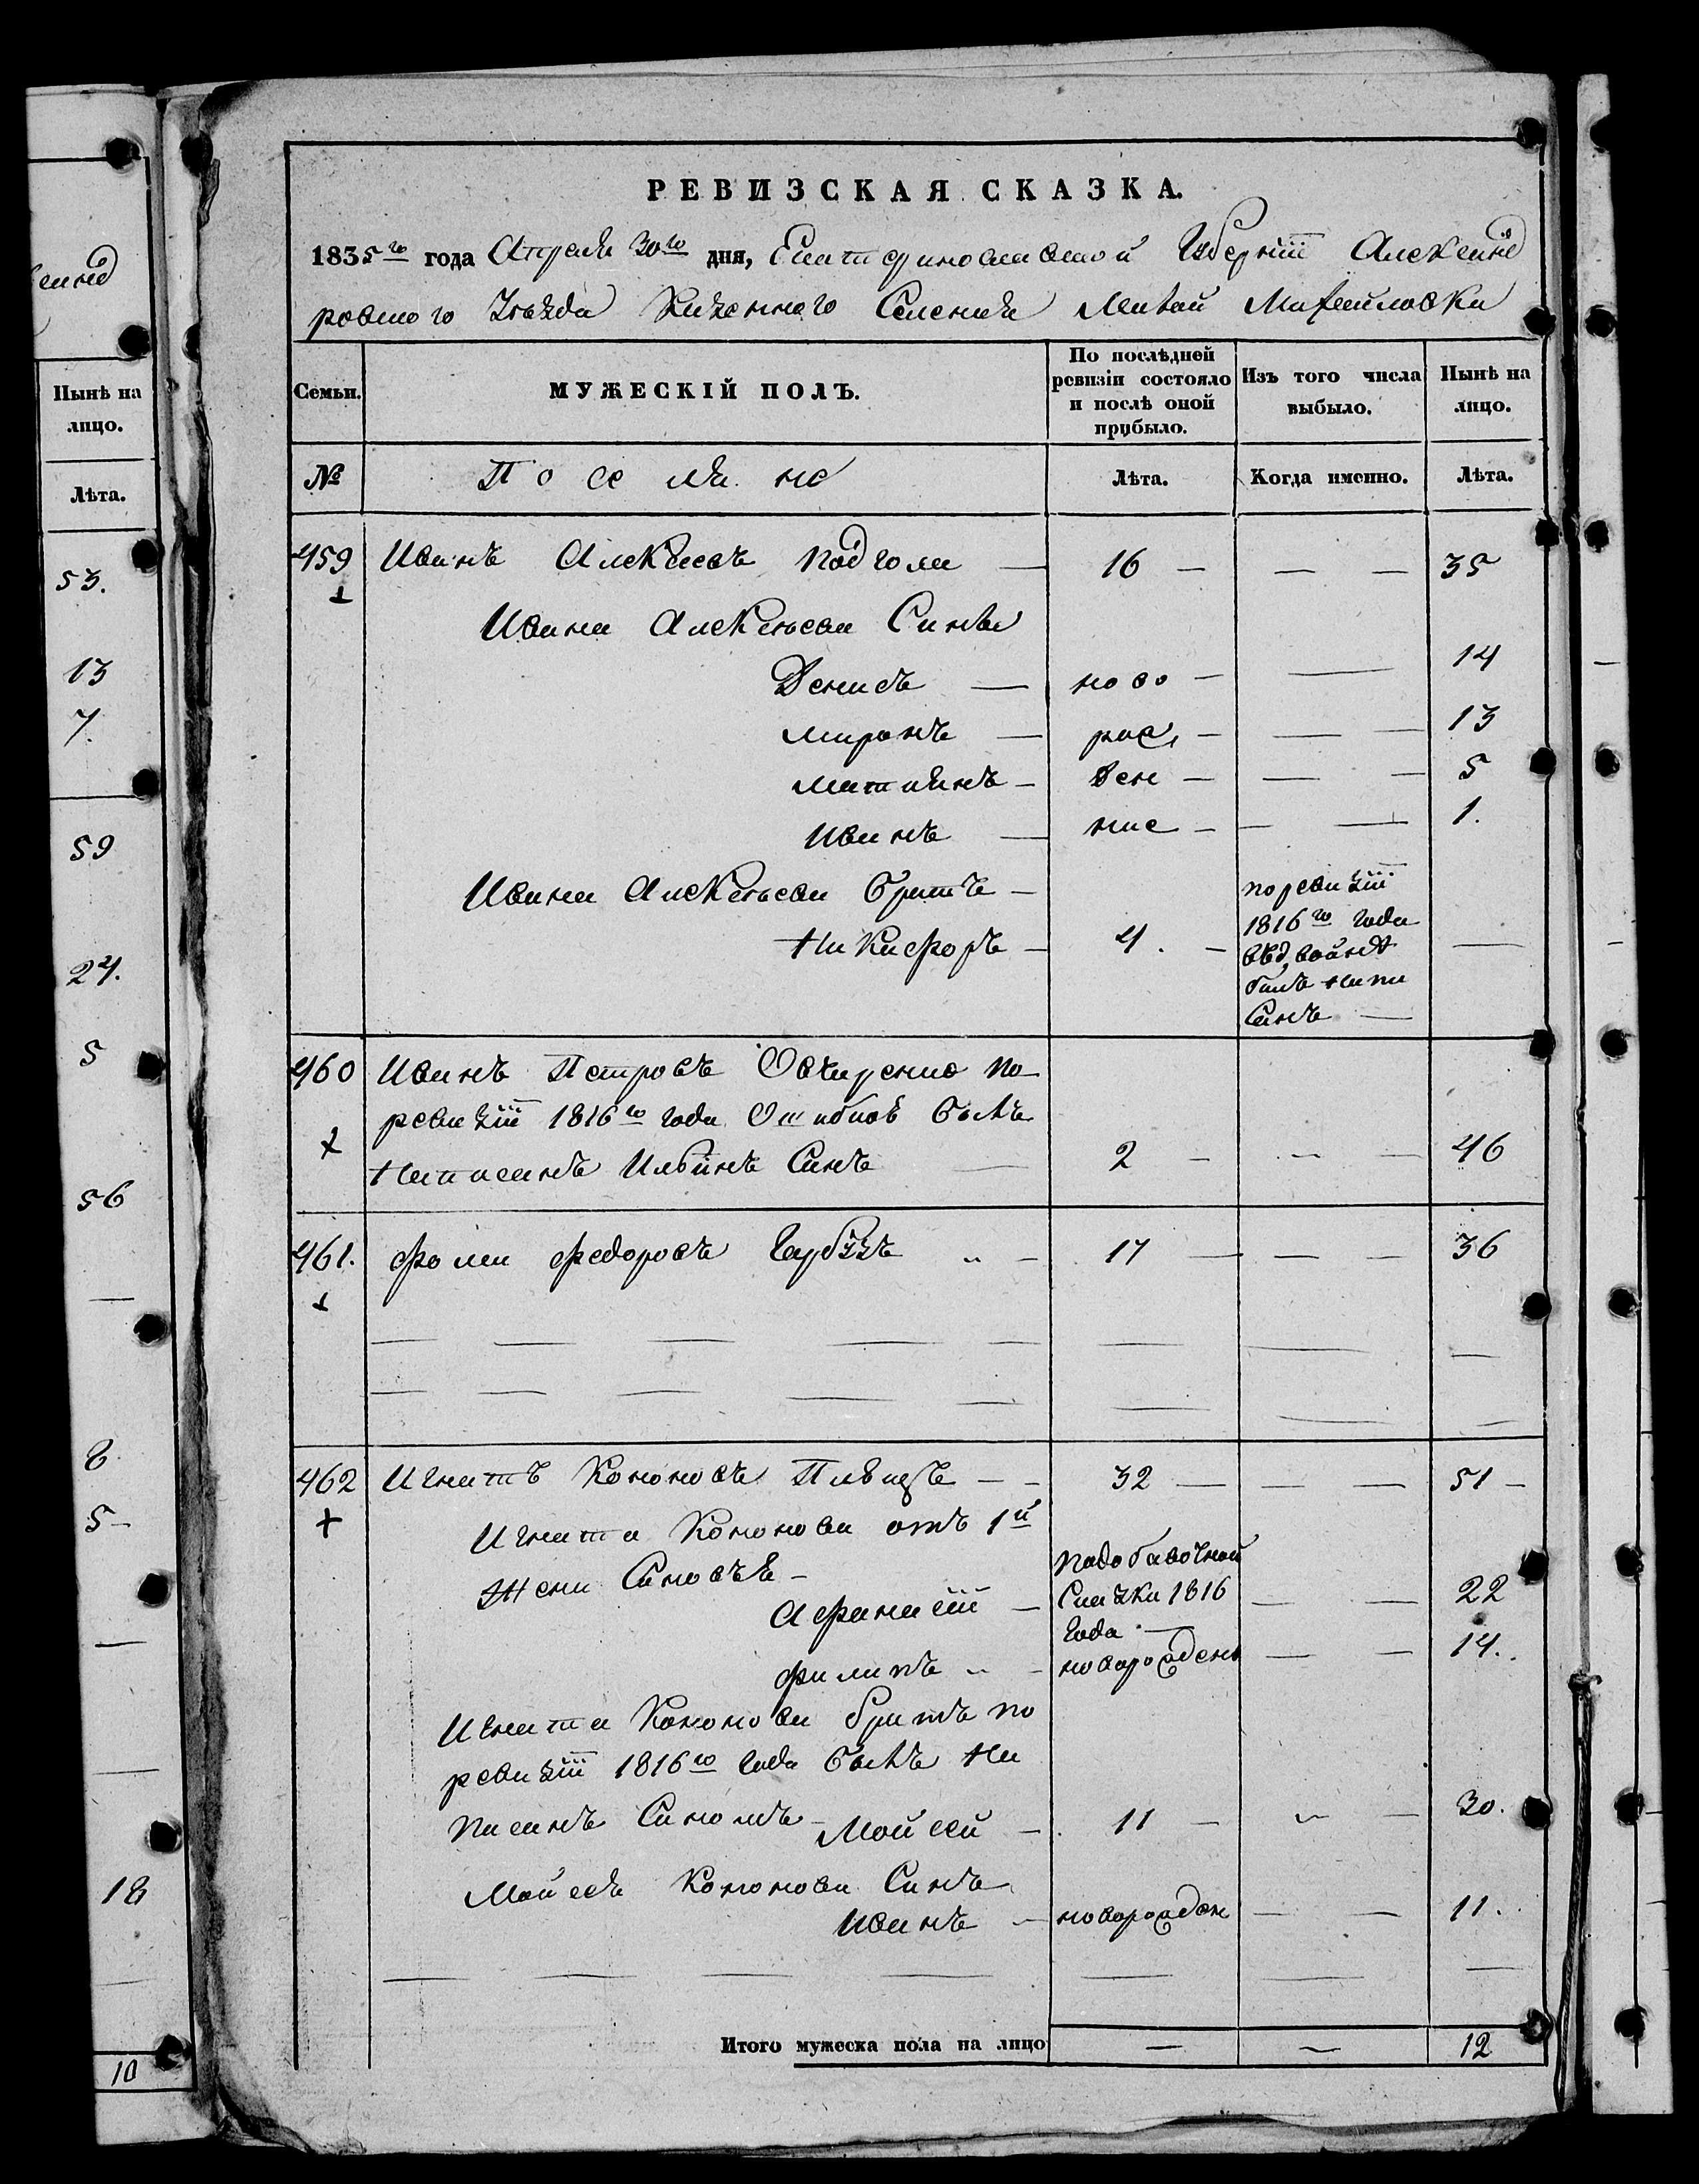 РЕВИЗСКАЯ СКАЗКА.
1835го года Апреля 30го дня, Екатеринославской Губернiи Александ
ровского Уѣзда Казенного Селенiя Малой Михайловки
Семьи.
МУЖЕСКIЙ ПОЛЪ.
По послѣдней ревизiи состояло и послѣ оной прибыло.
Изъ того числа выбыло.
Нынѣ на лицо.
№
Поселяне
Лѣта.
Когда именно.
Лѣта.
459 Иванъ Алексеевъ Подгома — 16 — — — 35
Ивана Алексѣева Синове
Денисъ — ново — — 14
Миронъ — рос, — — — 13
Матвѣнъ — ден — — — 5
Иванъ — ние — — — 1.
Ивана Алексѣева братъ — по ревизiи
Никифоръ — 4. — 1816го года —
билъ напи
санъ —
460 Иванъ Петровъ Овчаренко по
ревизiи 1816го года Ошибкой былъ
написанъ Ильинъ Синъ — 2 — — — 46
461. Фома Федоровъ Гарбузъ — 17 — — — 36
462 Игнатъ Кононовъ Пивецъ — — 32 — — — 51 —
Игната Кононова отъ 1й
Жени Синовъя —
Афанасiй — подобавочной Сказки 1816 года — — — 22
Филипъ — новорожденъ — — 14.
Игната Кононова братъ по
ревизiи 1816го года былъ на
писанъ Синомъ — Мойсей — 11 — — — 30.
Мойсея Кононова Синъ
Иванъ — новорожден — — 11.
Итого мужеска пола на лицо — — 12
анд
Нынѣ на
лицо.
Лѣта.
53.
13
7.
59
24.
5
56
8
5 —
18
10